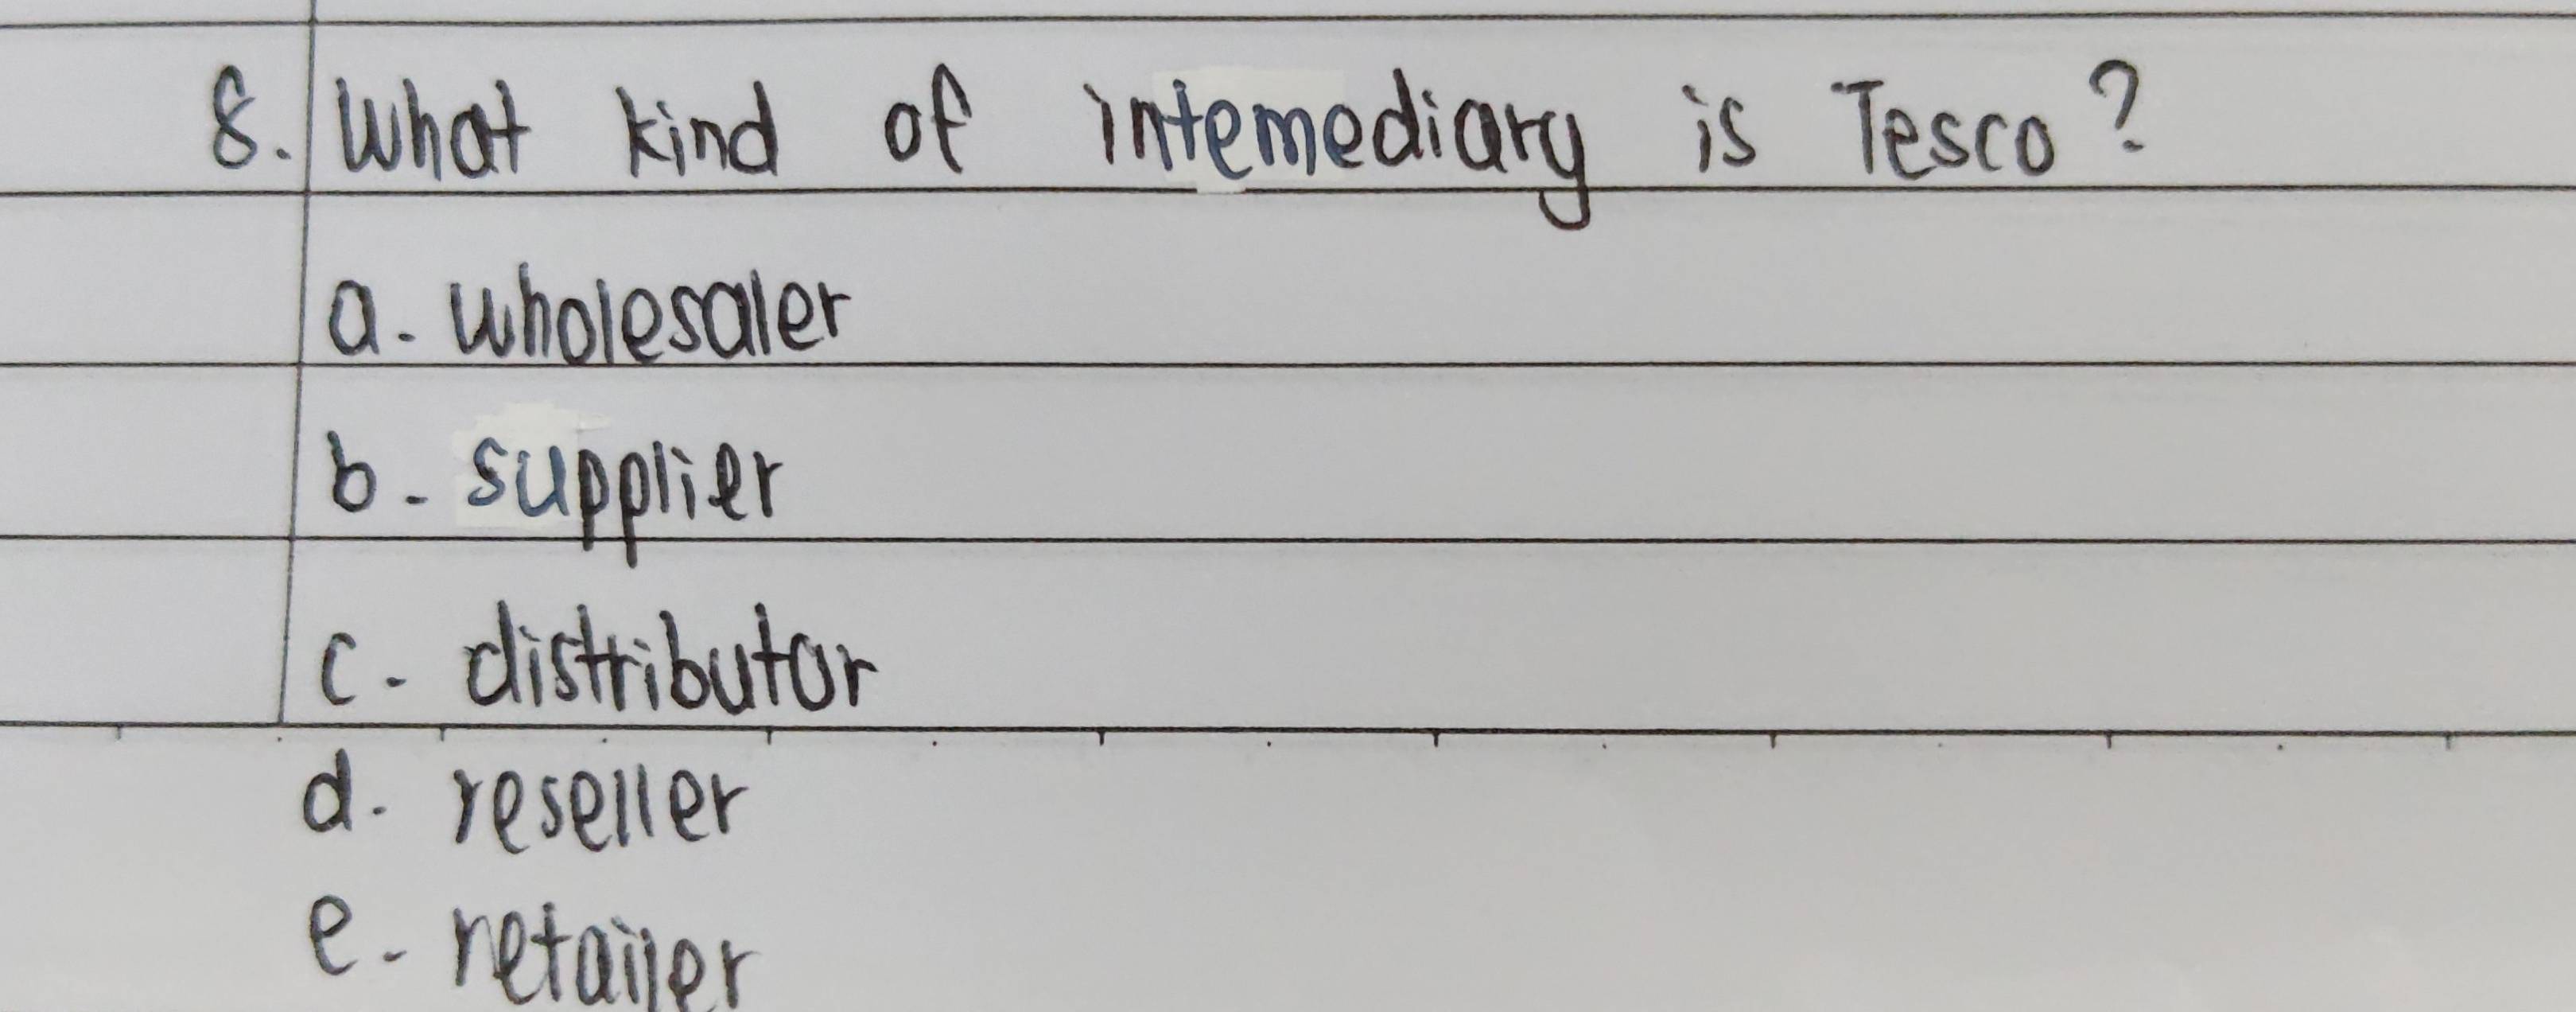 8. What kind of intemediary is Tesco?
a. wholesaler
b. supplier
c. distributor
d. reseller
e. retailer